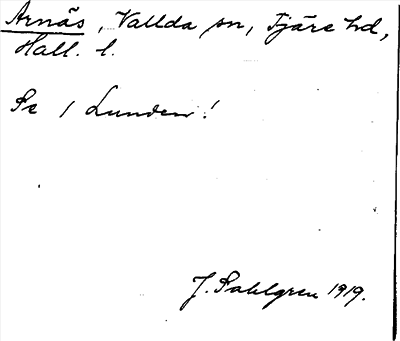 Arnäs, Vallda sn, Fjäre hd,
Hall. l.
Se 1 Lunden!
J. Sahlgren 1919.